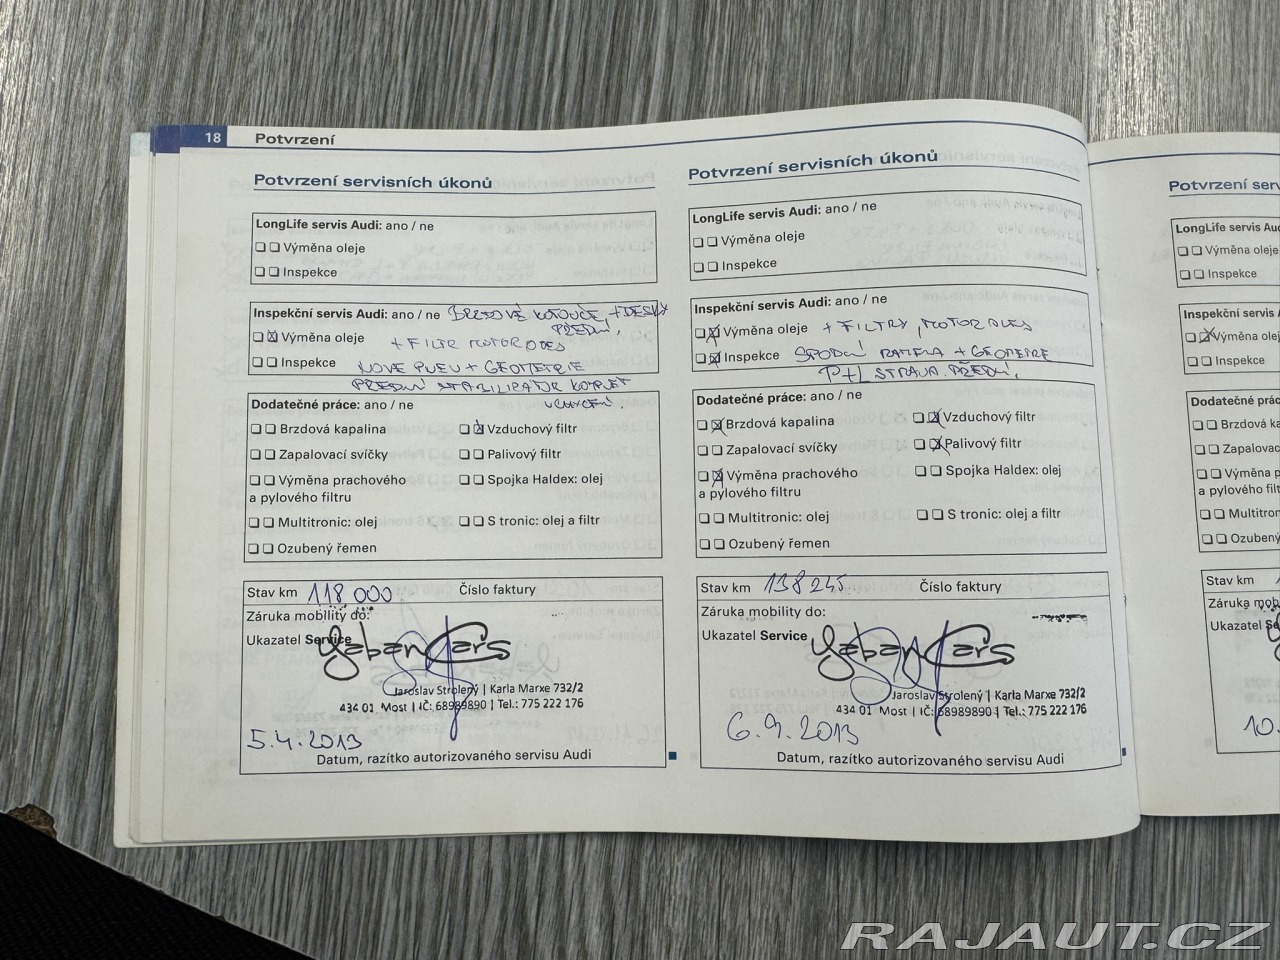 18 Potvrzení
Potvrzení servisních úkonů
LongLife servis Audi: ano / ne
Výměna oleje
Inspekce
Inspekční servis Audi: ano / ne BRZDOVÉ KOTOUČE, + DESKY
PŘEDNÍ,
Výměna oleje + FILTR MOTOR OLEJ
Inspekce NOVÉ PNEU + GEOMETRIE
PŘEDNÍ STABILIZÁTOR KOMPLET
UCHYCENÍ.
Dodatečné práce: ano / ne
Brzdová kapalina Vzduchový filtr
Zapalovací svíčky Palivový filtr
Výměna prachového Spojka Haldex: olej
a pylového filtru
Multitronic: olej S tronic: olej a filtr
Ozubený řemen
Stav km 118 000 Číslo faktury
Záruka mobility do:
Ukazatel Service
Jaroslav Strolený | Karla Marxe 732/2
434 01 Most | IČ: 68989890 | Tel.: 775 222 176
5.4.2013
Datum, razítko autorizovaného servisu Audi
Potvrzení servisních úkonů
LongLife servis Audi: ano / ne
Výměna oleje
Inspekce
Inspekční servis Audi: ano / ne
Výměna oleje + FILTRY, MOTOR OLEJ
Inspekce SPODNÍ RAMENA + GEOMETRIE
P+L STRANA PŘEDNÍ,
Dodatečné práce: ano / ne
Brzdová kapalina Vzduchový filtr
Zapalovací svíčky Palivový filtr
Výměna prachového Spojka Haldex: olej
a pylového filtru
Multitronic: olej S tronic: olej a filtr
Ozubený řemen
Stav km 138 245 Číslo faktury
Záruka mobility do:
Ukazatel Service
Jaroslav Strolený | Karla Marxe 732/2
434 01 Most | IČ: 68989890 | Tel.: 775 222 176
6.9.2013
Datum, razítko autorizovaného servisu Audi
Potvrzení serv
LongLife servis Aud
Výměna oleje
Inspekce
Inspekční servis Aud
Výměna olej
Inspekce
Dodatečné práce: a
Brzdová ka
Zapalovací
Výměna p
a pylového filt
Multitron
Ozubený
Stav km
Záruka mob
Ukazatel Se
10.
RAJAUT.CZ